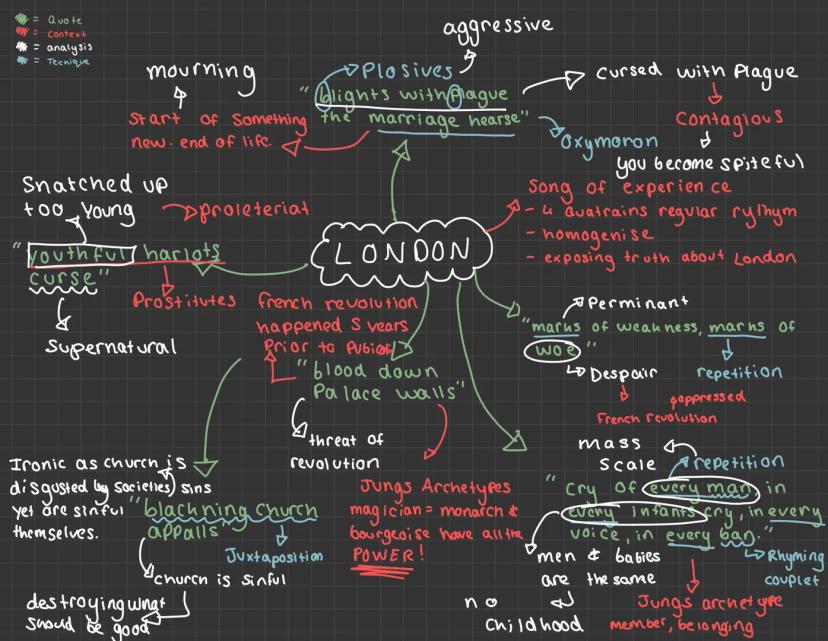 = Quote
= Context
= analysis
= Tecnique
aggressive
mourning
Plosives
"blights with Plague
the marriage hearse"
cursed with Plague
Start of Something
new. end of life.
Contagious
Oxymoron
you become spiteful
Snatched up
too young
proleteriat
Song of experience
- 4 quatrains regular rythym
- homogenise
- exposing truth about London
"youthful harlots
curse"
LONDON
Prostitutes
Supernatural
french revolution
happened 5 years
Prior to
Perminant
"marks of weakness, marks of
woe"
Despair
repetition
oppressed
French revolution
"blood down
Palace walls"
threat of
revolution
mass
scale
repetition
Ironic as church is
disgusted by societies sins
yet are sinful
themselves.
"blackning church
appalls"
Juxtaposition
church is sinful
destroying what
should be good
Jungs Archetypes
magician = monarch &
bourgeoise have all the
POWER!
"Cry of every man in
every infants cry, in every
voice, in every ban."
Rhyming
couplet
men & babies
are the same
no
childhood
Jungs archetype
member, belonging